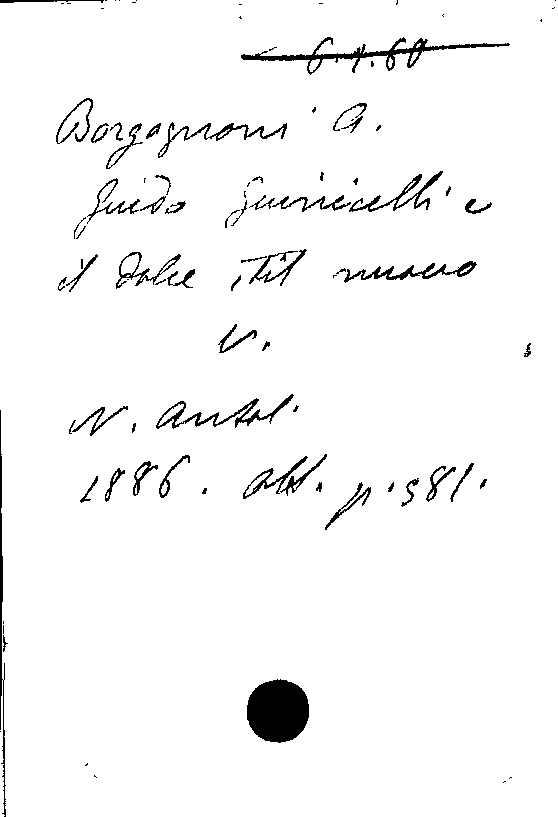 6.1.60
Borgognoni A.
Guido Guinicelli e
il dolce stil nuovo
V.
N. Antol.
1886. ott. p. 581.